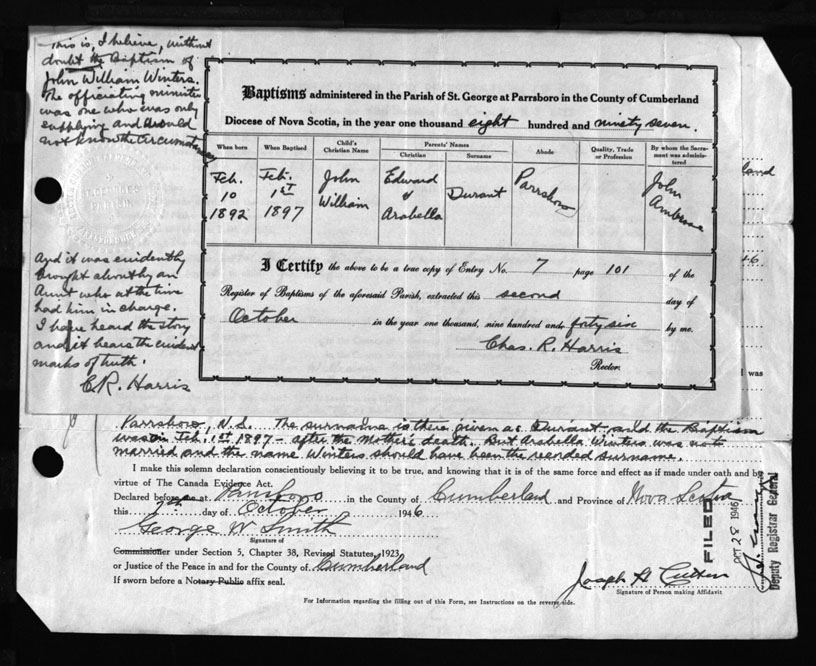 This is, I believe, without
doubt the Baptism of
John William Winters.
The officiating minister
was one who was only
supplying and would
not know the circumstances
And it was evidently
brought about by an
Aunt who at the time
had him in charge.
I have heard the story
and it bears the evident
marks of truth.
C.R. Harris
Baptisms administered in the Parish of St. George at Parrsboro in the County of Cumberland
Diocese of Nova Scotia, in the year one thousand eight hundred and ninety seven.
When born When Baptised Child's Christian Name Parents' Names Christian Surname Abode Quality, Trade or Profession By whom the Sacrament was administered
Feb. 10 1892 Feb. 1st 1897 John William Edward & Arabella Durant Parrsboro John Ambrose
I Certify the above to be a true copy of Entry No. 7 page 101 of the
Register of Baptisms of the aforesaid Parish, extracted this second day of
October in the year one thousand, nine hundred and forty six by me.
Chas. R. Harris
Rector.
Parrsboro, N.S. The surname is there given as Durant and the Baptism
was on Feb. 1st 1897 - after the Mother's death. But Arabella Winters was not
married and the name Winters should have been the recorded surname.
I make this solemn declaration conscientiously believing it to be true, and knowing that it is of the same force and effect as if made under oath and by
virtue of The Canada Evidence Act.
Declared before me at Parrsboro in the County of Cumberland and Province of Nova Scotia
this day of October 1946
George W Smith
Signature of
Commissioner under Section 5, Chapter 38, Revised Statutes, 1923
or Justice of the Peace in and for the County of Cumberland
If sworn before a Notary Public affix seal.
Joseph H
Signature of Person making Affidavit
For Information regarding the filling out of this Form, see Instructions on the reverse side.
FILED
OCT 28 1946
Deputy Registrar General
was